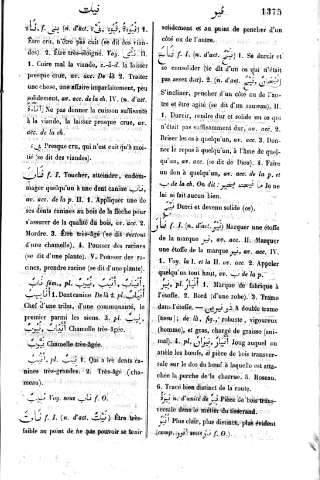 نيت
نير
1375
1. Être cru, n'être pas cuit (se dit des vian-
des). 2. Être très-éloigné. Voy.
1. Cuire mal la viande, c.-à-d. la laisser
presque crue, av. acc. De là 2. Traiter
une chose, une affaire imparfaitement, peu
solidement, av. acc. de la ch. IV. (n. d'act.
Ne pas donner la cuisson suffisante
à la viande, la laisser presque crue, av.
acc. de la ch.
Presque cru, qui n'est cuit qu'à moi-
tié (se dit des viandes).
f. I. Toucher, atteindre, endom-
mager quelqu'un à une dent canine
av. acc. de la p. II. 1. Appliquer une de
ses dents canines au bois de la flèche pour
s'assurer de la qualité du bois, av. acc. 2.
Mordre. 3. Être très-âgée (se dit surtout
d'une chamelle). 4. Pousser des racines
(se dit d'une plante). V. Pousser des ra-
cines, prendre racine (se dit d'une plante).
ناب fém., pl.
1. Dent canine De là 2. pl.
Chef d'une tribu, d'une communauté, le
premier parmi les siens. 3. pl.
Chamelle très-âgée.
Chamelle très-âgée.
pl. 1. Qui a les dents ca-
nines très-grandes. 2. Très-âgé (cha-
meau).
Voy. sous f. O.
f. I. (n. d'act. Être très-
faible au point de ne pas pouvoir se tenir
solidement et au point de pencher d'un
côté ou de l'autre.
f. I. (n. d'act. 1. Se durcir et
se consolider (se dit d'un os qui n'était
pas assez dur). 2. (n. d'act.
S'incliner, pencher d'un côté ou de l'au-
tre et être agité (se dit d'un rameau). II.
1. Durcir, rendre dur et solide un os qui
n'était pas suffisamment dur, av. acc. 2.
Briser les os à quelqu'un, av. acc. 3. Don-
ner le repos à quelqu'un, à l'âme de quel-
qu'un, av. acc. (se dit de Dieu). 4. Faire
un don à quelqu'un, av. acc. de la p. et
de la ch. On dit : Je ne
lui ai fait aucun bien.
Durci et devenu solide (os).
f. I. (n. d'act. Marquer une étoffe
de la marque av. acc. II. Marquer
une étoffe de la marque av. acc. IV.
1. Voy. la I. et la II. av. acc. 2. Appeler
quelqu'un tout haut, av. de la p.
نير pl. 1. Marque de fabrique à
l'étoffe. 2. Bord (d'une robe). 3. Trame
dans l'étoffe. — A double trame
(nom.); de là, fig., robuste, vigoureux
(homme), et gras, chargé de graisse (ani-
mal). 4. pl. Joug auquel on
attèle les bœufs, et pièce de bois transver-
sale sur le dos du bœuf à laquelle est atta-
chée la perche de la charrue. 5. Roseau.
6. Tracé bien distinct de la route.
n. d'unité de Pièce de bois trans-
versale dans le métier du tisserand.
Plus clair, plus distinct, plus évident
(comp. sous f. O.).